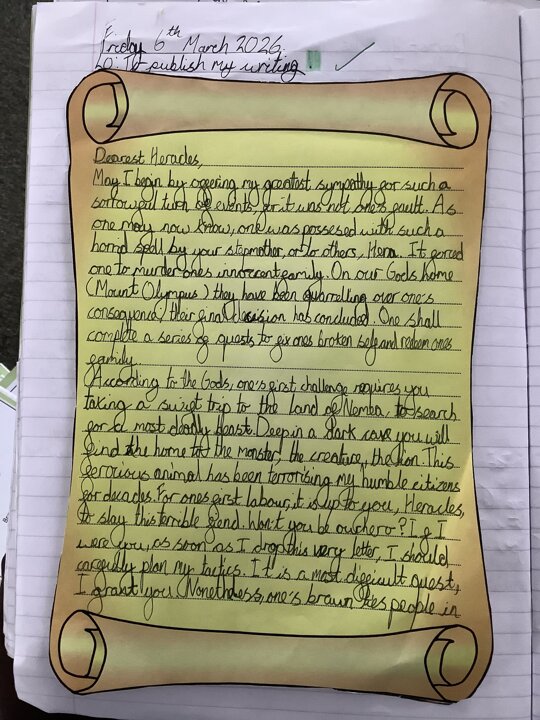 Friday 6th March 2026
LO: To publish my writing.
Dearest Heracles,
May I begin by offering my greatest sympathy for such a
sorrowful turn of events, for it was not one's fault. As
one may now know, one was possesed with such a
horrid spell by your stepmother, or to others, Hera. It forced
one to murder one's innocent family. On our Gods home
(Mount Olympus) they have been quarrelling over one's
consequence, their final decision has concluded. One shall
complete a series of quests to fix ones broken self and redeem ones
family.
According to the Gods, one's first challenge requires you
taking a swift trip to the land of Nemea, to search
for a most deadly beast. Deep in a dark cave you will
find the home to the monster, the creature, the lion. This
ferocious animal has been terrorising my humble citizens
for decades. For ones first labour, it is up to you, Heracles,
to slay this terrible fiend. Won't you be our hero? If I
were you, as soon as I drop this very letter, I should
carefully plan my tactics. It is a most difficult quest,
I grant you. Nonetheless, one's brawn people in